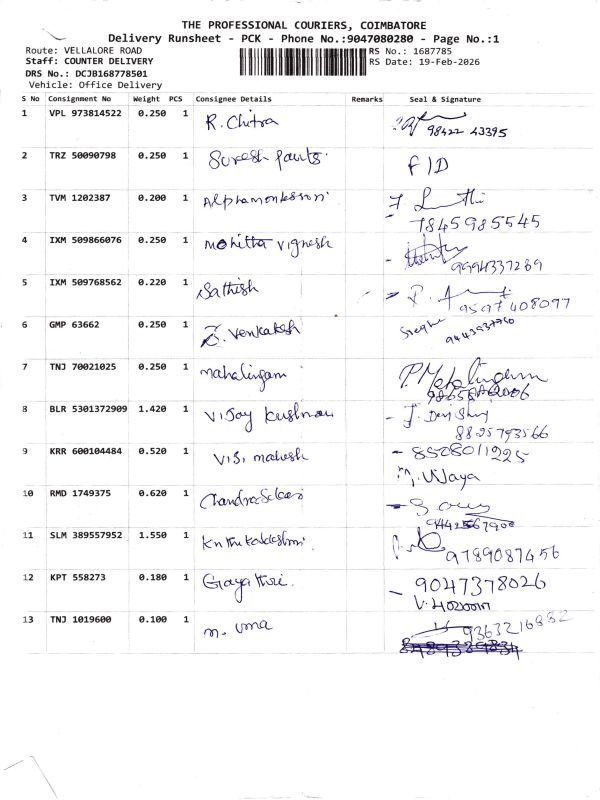 THE PROFESSIONAL COURIERS, COIMBATORE
Delivery Runsheet - PCK - Phone No.:9047080280 - Page No.:1
Route: VELLALORE ROAD
RS No.: 1687785
Staff: COUNTER DELIVERY
RS Date: 19-Feb-2026
DRS No.: DCJB168778501
Vehicle: Office Delivery
S No Consignment No Weight PCS Consignee Details Remarks Seal & Signature
1 VPL 973814522 0.250 1 R. Chitra
98422 43395
2 TRZ 50090798 0.250 1 Suresh paints. FID
3 TVM 1202387 0.200 1 Alphamontessori
7845985545
4 IXM 509866076 0.250 1 Mohitha Vignesh
9994337269
5 IXM 509768562 0.220 1 Sathish
9597408097
6 GMP 63662 0.250 1 Venkatesh
7 TNJ 70021025 0.250 1 Mahalingam
8 BLR 5301372909 1.420 1 Vijay
8825793566
9 KRR 600104484 0.520 1 V.S. mahesh - 8528011225
M. Vijaya
10 RMD 1749375 0.620 1
11 SLM 389557952 1.550 1
9789087456
12 KPT 558273 0.180 1 Gayathri. - 9047378026
13 TNJ 1019600 0.100 1 n. uma 9363216832